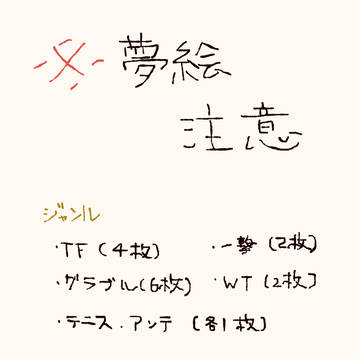 ※夢絵
注意
ジャンル
・TF(4枚)
・一撃(2枚)
・グラブル(6枚)
・WT(2枚)
・テニス・アンテ(各1枚)